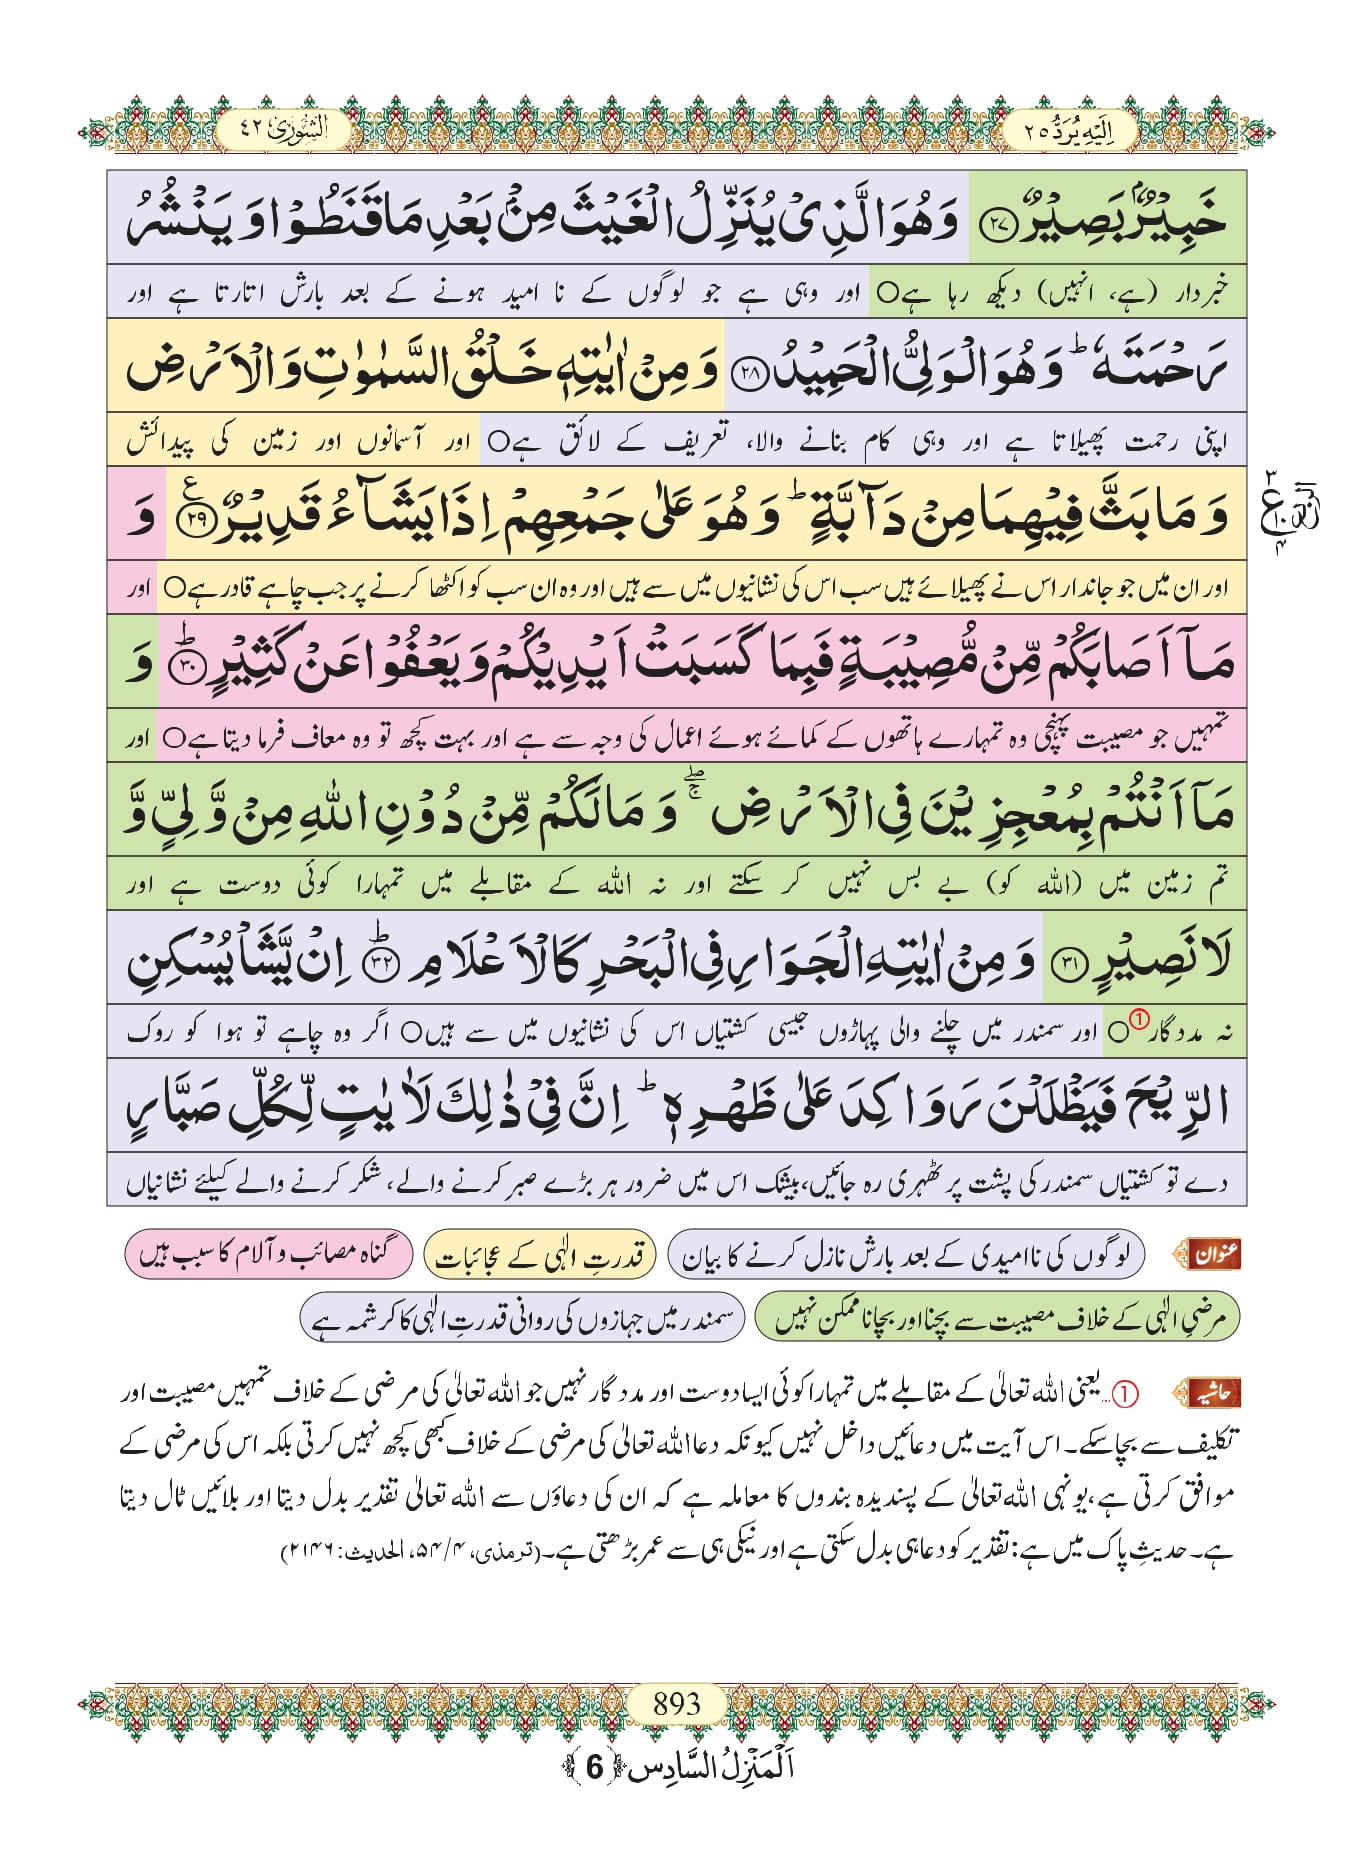 اِلَیْہِ یُرَدُّ ۲۵
الشُّوْرٰی ۴۲
خَبِیْرٌۢ بَصِیْرٌ ﴿۲۷﴾ وَ هُوَ الَّذِیْ یُنَزِّلُ الْغَیْثَ مِنْۢ بَعْدِ مَا قَنَطُوْا وَ یَنْشُرُ
خبردار (ہے، انہیں) دیکھ رہا ہے○ اور وہی ہے جو لوگوں کے نا امید ہونے کے بعد بارش اتارتا ہے اور
رَحْمَتَهٗ ؕ وَ هُوَ الْوَلِیُّ الْحَمِیْدُ ﴿۲۸﴾ وَ مِنْ اٰیٰتِهٖ خَلْقُ السَّمٰوٰتِ وَ الْاَرْضِ
اپنی رحمت پھیلاتا ہے اور وہی کام بنانے والا، تعریف کے لائق ہے○ اور آسمانوں اور زمین کی پیدائش
وَ مَا بَثَّ فِیْهِمَا مِنْ دَآبَّةٍ ؕ وَ هُوَ عَلٰى جَمْعِهِمْ اِذَا یَشَآءُ قَدِیْرٌ ﴿۲۹﴾ ع وَ
۳
ع ۱۰
۴
اور ان میں جو جاندار اس نے پھیلائے ہیں سب اس کی نشانیوں میں سے ہیں اور وہ ان سب کو اکٹھا کرنے پر جب چاہے قادر ہے○ اور
مَاۤ اَصَابَكُمْ مِّنْ مُّصِیْبَةٍ فَبِمَا كَسَبَتْ اَیْدِیْكُمْ وَ یَعْفُوْا عَنْ كَثِیْرٍ ؕ﴿۳۰﴾ وَ
تمہیں جو مصیبت پہنچی وہ تمہارے ہاتھوں کے کمائے ہوئے اعمال کی وجہ سے ہے اور بہت کچھ تو وہ معاف فرما دیتا ہے○ اور
مَاۤ اَنْتُمْ بِمُعْجِزِیْنَ فِی الْاَرْضِ ۚۖ وَ مَا لَكُمْ مِّنْ دُوْنِ اللّٰهِ مِنْ وَّلِیٍّ وَّ
تم زمین میں (اللہ کو) بے بس نہیں کر سکتے اور نہ اللہ کے مقابلے میں تمہارا کوئی دوست ہے اور
لَا نَصِیْرٍ ﴿۳۱﴾ وَ مِنْ اٰیٰتِهِ الْجَوَارِ فِی الْبَحْرِ كَالْاَعْلَامِ ؕ﴿۳۲﴾ اِنْ یَّشَاْ یُسْكِنِ
نہ مددگار①○ اور سمندر میں چلنے والی پہاڑوں جیسی کشتیاں اس کی نشانیوں میں سے ہیں○ اگر وہ چاہے تو ہوا کو روک
الرِّیْحَ فَیَظْلَلْنَ رَوَاكِدَ عَلٰى ظَهْرِهٖ ؕ اِنَّ فِیْ ذٰلِكَ لَاٰیٰتٍ لِّكُلِّ صَبَّارٍ
دے تو کشتیاں سمندر کی پشت پر ٹھہری رہ جائیں، بیشک اس میں ضرور ہر بڑے صبر کرنے والے، شکر کرنے والے کیلئے نشانیاں
عنوان لوگوں کی ناامیدی کے بعد بارش نازل کرنے کا بیان قدرتِ الٰہی کے عجائبات گناہ مصائب و آلام کا سبب ہیں
مرضیِ الٰہی کے خلاف مصیبت سے بچنا اور بچانا ممکن نہیں سمندر میں جہازوں کی روانی قدرتِ الٰہی کا کرشمہ ہے
حاشیہ ①…یعنی اللہ تعالیٰ کے مقابلے میں تمہارا کوئی ایسا دوست اور مددگار نہیں جو اللہ تعالیٰ کی مرضی کے خلاف تمہیں مصیبت اور
تکلیف سے بچا سکے۔ اس آیت میں دعائیں داخل نہیں کیونکہ دعا اللہ تعالیٰ کی مرضی کے خلاف کبھی کچھ نہیں کرتی بلکہ اس کی مرضی کے
موافق کرتی ہے، یونہی اللہ تعالیٰ کے پسندیدہ بندوں کا معاملہ ہے کہ ان کی دعاؤں سے اللہ تعالیٰ تقدیر بدل دیتا اور بلائیں ٹال دیتا
ہے۔ حدیثِ پاک میں ہے: تقدیر کو دعا ہی بدل سکتی ہے اور نیکی ہی سے عمر بڑھتی ہے۔ (ترمذی، ۴/۵۴، الحدیث: ۲۱۴۶)
893
اَلْمَنْزِلُ السَّادِس ﴿6﴾